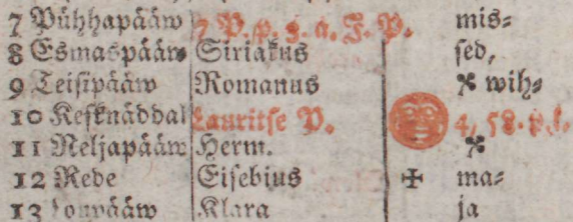 7 Pühhapääw 7 P. p. 3. a. J. P. mis⸗
8 Esmaspääw Siriakus sed,
9 Teisipääw Romanus wih⸗
10 Kesknäddal Lauritse P. 4, 58. p. l.
11 Neljapääw Herm.
12 Rede Eisebius ✠ ma⸗
13 Klara ja